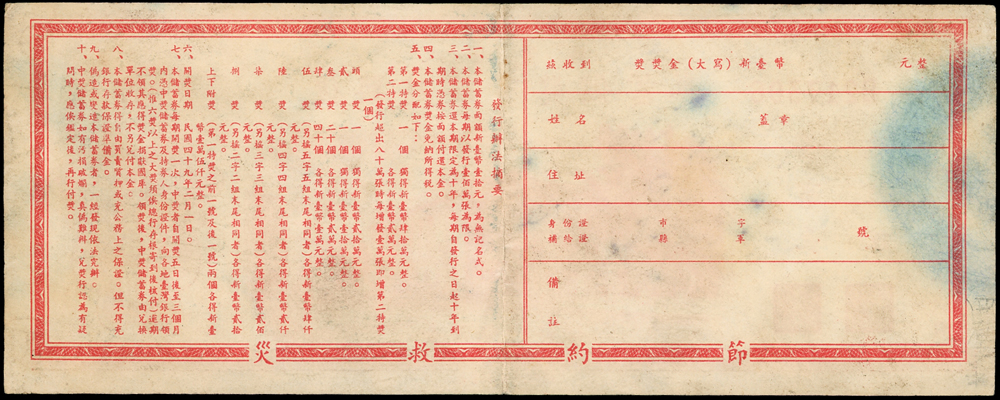 茲收到　獎獎金（大寫）新臺幣　元整
姓名　蓋章
住址
身份證　市　字　號
補給證　縣　軍
備註
發行辦法摘要
一、本儲蓄券面額新臺幣壹拾元，為無記名式。
二、本儲蓄券每期以發行壹佰萬張為限。
三、本儲蓄券還本期限定為十年，每期自發行之日起十年到
期時憑券按面額付還本金。
四、本儲蓄券獎金免納所得稅。
五、獎金分配如下：
第一特獎　一個　獨得新臺幣肆拾萬元整。
第二特獎　各得新臺幣貳萬元整。
（發行超出八十萬張時每增發壹萬張即增第二特獎
一個）
頭獎　一個　獨得新臺幣貳拾萬元整。
貳獎　一個　獨得新臺幣壹拾萬元整。
叁獎　二十個　各得新臺幣貳萬元整。
肆獎　四十個　各得新臺幣壹萬元整。
伍獎　（另搖五字五組末尾相同者）各得新臺幣肆仟
元整。
陸獎　（另搖四字四組末尾相同者）各得新臺幣貳仟
元整。
柒獎　（另搖三字三組末尾相同者）各得新臺幣貳佰
元整。
捌獎　（另搖二字二組末尾相同者）各得新臺幣貳拾
元整。
上下附獎　（第一特獎之前一號及後一號）兩個各得新臺
幣壹萬伍仟元整。
六、開獎日期　民國四十九年二月一日。
七、本儲蓄券每期開獎一次，中獎者自開獎五日後至三個月
內憑中獎儲蓄券及持券人身份證件，向各地臺灣銀行領
獎。（惟六獎以上之大獎須俟總行存根寄到後核付）逾期
不領其應得獎金捐獻國庫。領獎後，中獎儲蓄券由兌換
單位收存，不另兌付本金。
八、本儲蓄券得自由買賣質押或充公務上之保證。但不得充
銀行存款保證準備金。
九、偽造或變造本儲蓄券者，一經發現依法究辦。
十、中獎儲蓄券如有污損破爛，真偽難辨，兌獎行認為有疑
問時，應俟鑑定後，再行付獎。
節約救災